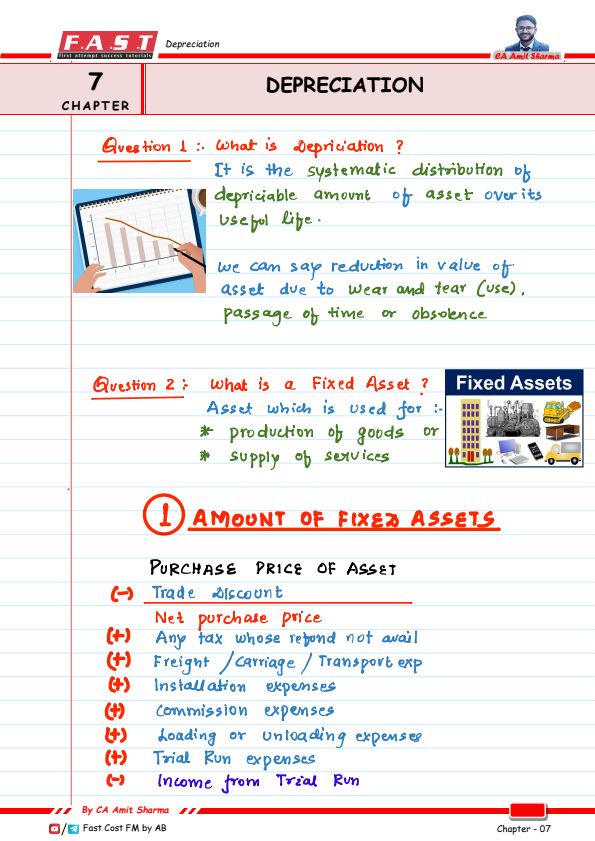 F.A.S.T
first attempt success tutorials
Depreciation
CA Amit Sharma
7
CHAPTER
DEPRECIATION
Question 1 :- What is Depriciation ?
It is the systematic distribution of
depriciable amount of asset over its
useful life.
we can say reduction in value of
asset due to wear and tear (use),
passage of time or obsolence
Question 2 :- What is a Fixed Asset ?
Asset which is used for :-
* production of goods or
* supply of services
Fixed Assets
1 AMOUNT OF FIXED ASSETS
PURCHASE PRICE OF ASSET
(-) Trade Discount
Net purchase price
(+) Any tax whose refond not avail
(+) Freight / Carriage / Transport exp
(+) Installation expenses
(+) Commission expenses
(+) Loading or unloading expenses
(+) Trial Run expenses
(-) Income from Trial Run
By CA Amit Sharma
/ Fast Cost FM by AB
Chapter - 07